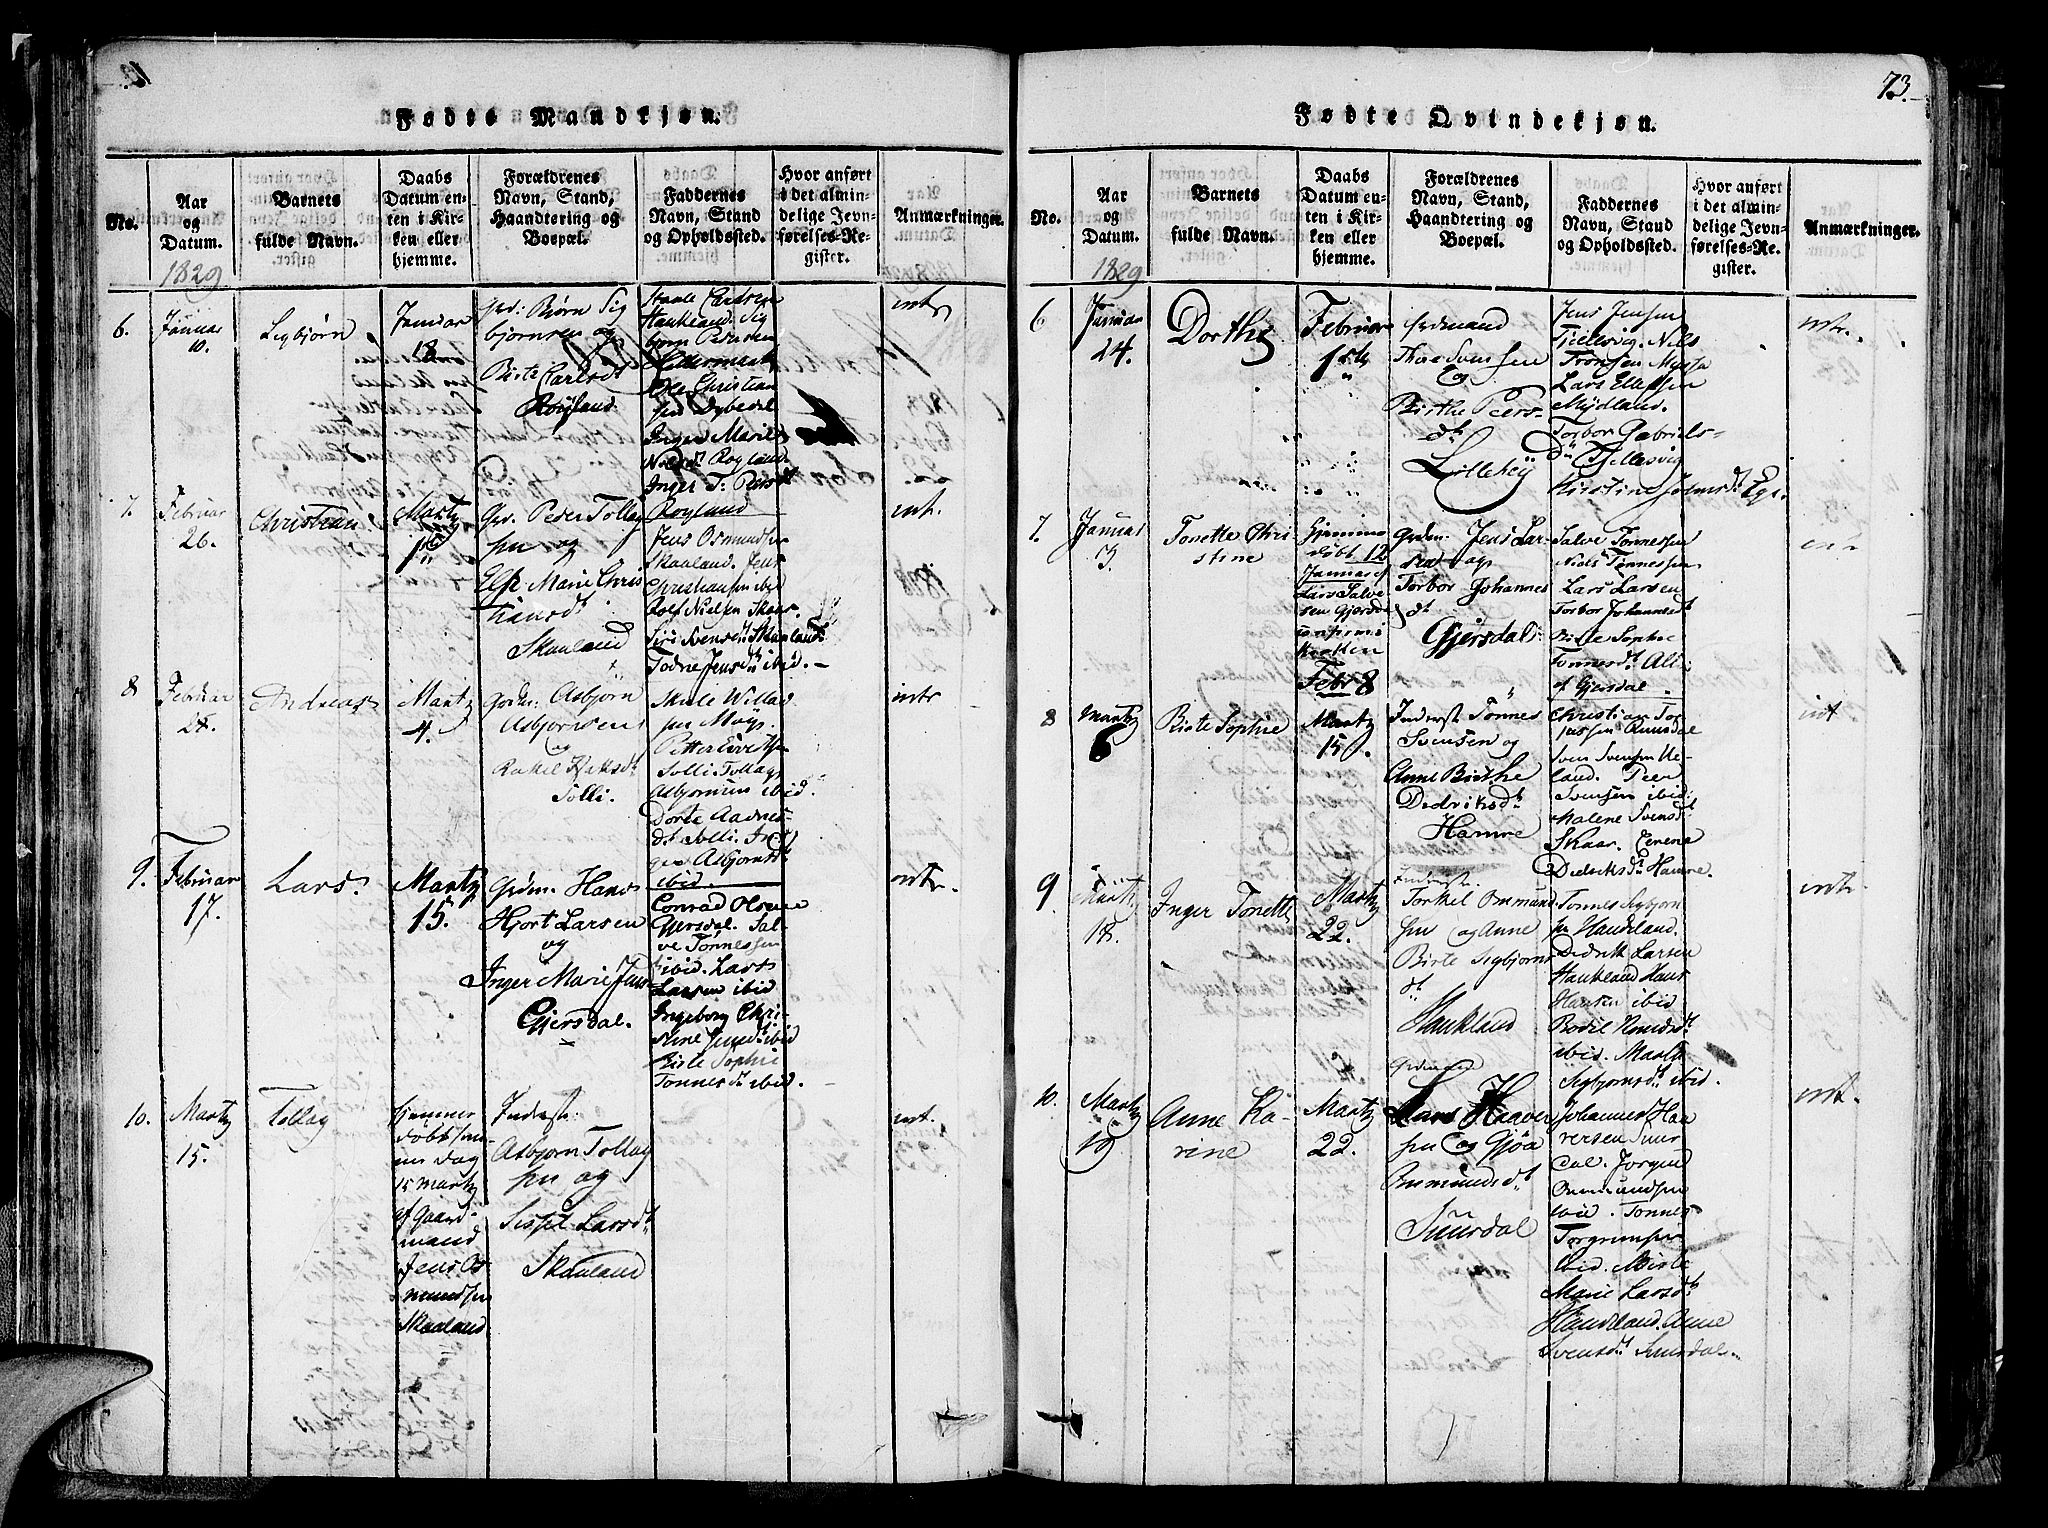 Fødte Mandkjøn.
No.
Aar
og
Datum.
1829
Barnets
fulde Navn.
Daabs
Datum en-
ten i Kir-
ken eller
hjemme.
Forældrenes
Navn, Stand,
Haandtering og
Boepæl.
Faddernes
Navn, Stand
og Opholdssted.
Hvor anført
i det almin-
delige Jevn-
førelses-Re-
gister.
Anmærkninger.
6.
Januar
10.
Segbjørn
Januar
18
Grd: Bjørn Sig
bjørnsen og
Birte Carlsdt
Røyland.
Haukland. Sig
bjørn Pedersen
Ole Christian
sen Dybedal
Inger Marie
Nilsdt Røyland.
Røyland
intr
7.
Februar
26.
Christian
Martz
1ste
Grd. Peder Tollag
sen og
Else Marie Chris
tiansdt
Skaaland
Jens Osmundsen
Skaaland. Jens
Christiansen ibid
Rolf Nielsen Skaar
Siri Svensdt Skaaland
Todne Jensdt ibid. –
int.
8
Februar
Andreas
Martz
4.
Grdm: Asbjørn
Asbjørnsen
og
Rakel
Tolli.
Skule Willad
sen Møyi.
Petter
Solli. Tollag
Asbjørnsen ibid.
Dorte Aadnes
dt Solli. In
ger Asbjornsdt
ibid.
intr
9.
Februar
17.
Lars.
Martz
15.
Grdm. Hans
Hjort Larsen
og
Inger Marie Jens
Gjersdal.
Conrad Olsen
Gjersdal. Sal-
ve Tönnessen
ibid. Lars
Larsen ibid
Ingeborg Chri-
stine Jensdt ibid
Birte Sophie
Tonnesdt ibid.
intr.
10.
Martz
15.
Tollag
hjemme
døbt sam-
me Dag
15 Martz
af Gaard-
mand
Jens Os
mundsen
Skaaland
Inderst:
Asbjørn Tollag
sen og
Sissel Larsdt
Skaaland
int.
73.
Fødte Qvindekjøn.
No.
Aar
og
Datum.
1829
Barnets
fulde Navn.
Daabs
Datum en-
ten i Kir-
ken eller
hjemme.
Forældrenes
Navn, Stand,
Haandtering og
Boepæl.
Faddernes
Navn, Stand
og Opholdssted.
Hvor anført
i det almin-
delige Jevn-
førelses-Re-
gister.
Anmærkninger.
6
Januar
24.
Dorthe
Februar
1ste
Grdmand
Thore Svensen
og
Birthe Peers-
dt
Lillehÿ
Jens Jensen
Tjellesvig. Nils
Tronsen Myssa
Lars Ellefsen
Mydland.
Torbor Gabriels-
dt Tjellesvig
Kirstine Johnsdt Ege.
intr.
7.
Januar
3.
Tonette Chri
stine
Hjemme
døbt 12
Januar af
Lars Salve
sen Gjersda
confirm: i
Kirken
Febr 8
Grdm: Jens Lar-
sen og
Torbor Johannes
dt
Gjersdal:
Salve Tønnessen
Niels Tønnessen
Lars Larsen
Torbor Johannesdt
Birte Sophie
Tonnesdt Alle
af Gjersdal.
8
Martz
6
Birte Sophie
Martz
15.
Inderst. Tönnes
Svensen og
Anne Birthe
Didriksdt
Hamre
Christian Tor
jussen Omsdal
Sven Svensen He-
land. Peer
Svensen ibid:
Malene Svensdt
Skaar. Serene
Didriksdt Hamre.
int
9
Martz
18.
Inger Tonette
Martz
22.
Inderst:
Torkel Ommund
sen og Anne
Birte Segbjørns
dt
Haukland
Tonnes Sigbjørn
sen Haukland.
Didrik Larsen
Haukland Hans
Hansen ibid
Bodil
ibid. Marte
Segbjornsdt ibid.
intr.
10.
Martz
19
Anne Ka-
rine
Martz
22.
Grdmand
Lars Haaver
sen og Gjøa
Ommundsdt
Suursdal
Johannes Haa
versen Suurs
dal. Jørgen
Ommundsen
ibid. Tonnes
Torgrimsen
ibid. Birte
Marie Larsdt
Haukland. Anne
Svensdt Suursdal.
int.